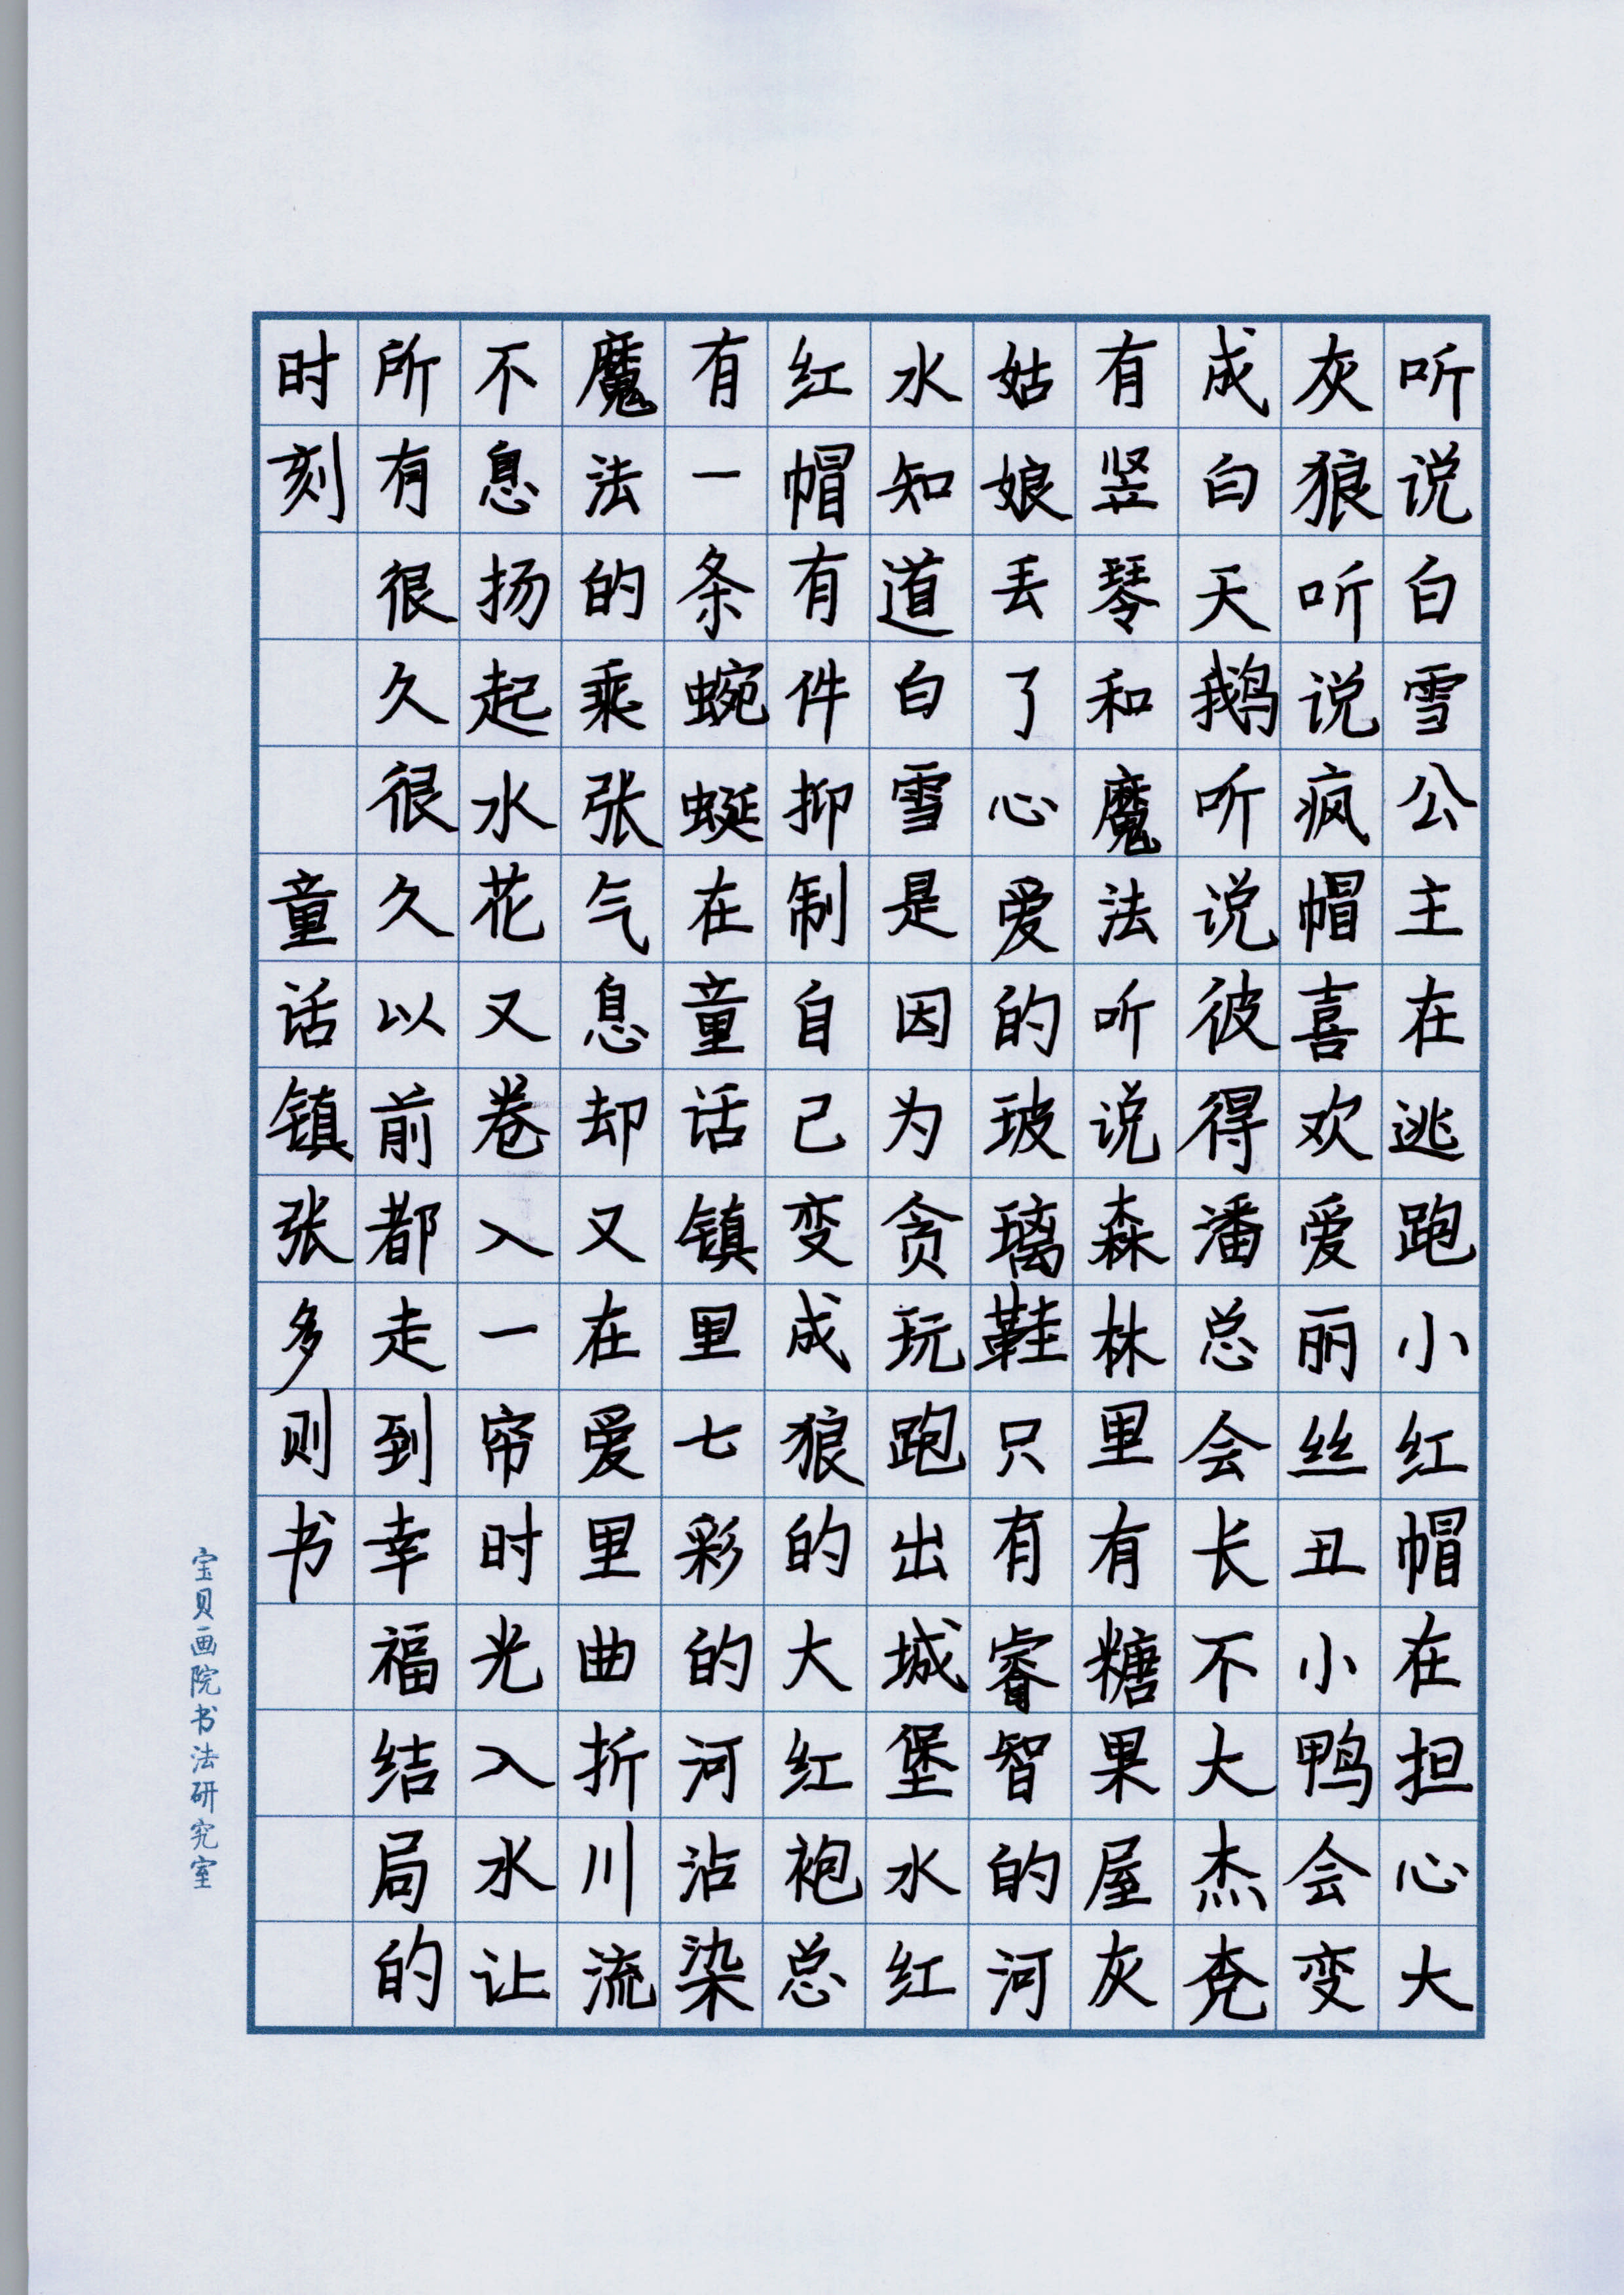 听说白雪公主在逃跑小红帽在担心大
灰狼听说疯帽喜欢爱丽丝丑小鸭会变
成白天鹅听说彼得潘总会长不大杰克
有竖琴和魔法听说森林里有糖果屋灰
姑娘丢了心爱的玻璃鞋只有睿智的河
水知道白雪是因为贪玩跑出城堡水红
红帽有件抑制自己变成狼的大红袍总
有一条蜿蜒在童话镇里七彩的河沾染
魔法的乘张气息却又在爱里曲折川流
不息扬起水花又卷入一帘时光入水让
所有很久很久以前都走到幸福结局的
时刻
童话镇张多则书
宝贝画院书法研究室